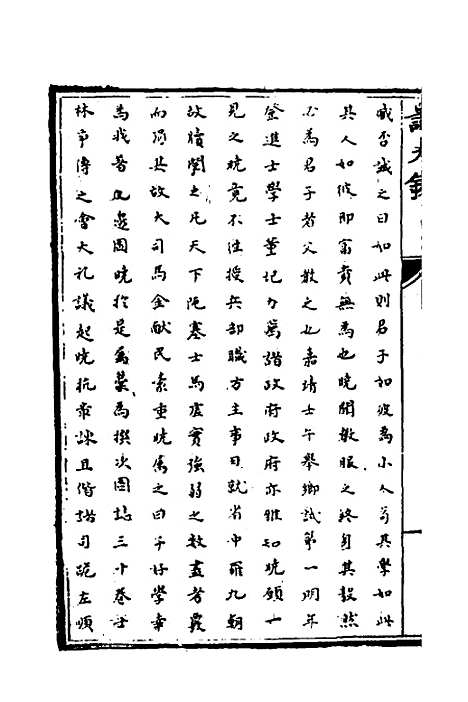 臧否誡之曰如此則君子如彼為小人苟其學如此
其人如彼即富貴無為也曉聞教服之終身其毅然
不為君子者父教之也嘉靖壬午舉鄉試第一明年
登進士學士董玘力薦諸政府政府亦雅知曉願一
見之曉竟不往授兵部職方主事日就省中羅九朝
故牘閱之凡天下阨塞士馬虛實強弱之數盡考覈
而得其故大司馬金獻民素重曉屬之曰子好學幸
為我著九邊圖曉於是屬藁為撰次圖誌三十卷士
林爭傳之會大禮議起曉抗章諫且偕諸司跪左順